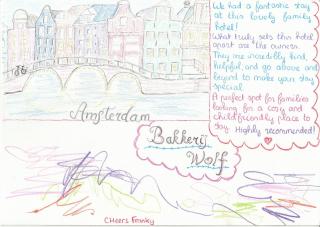 We had a fantastic stay
at this lovely family
hotel!
What truly sets this hotel
apart are the owners.
They are incredibly kind,
helpful, and go above and
beyond to make your stay
special.
A perfect spot for families
looking for a cosy and
childfriendly place to
stay. Highly recommended!
Amsterdam
Bakkerij
Wolf
CHeers Franky